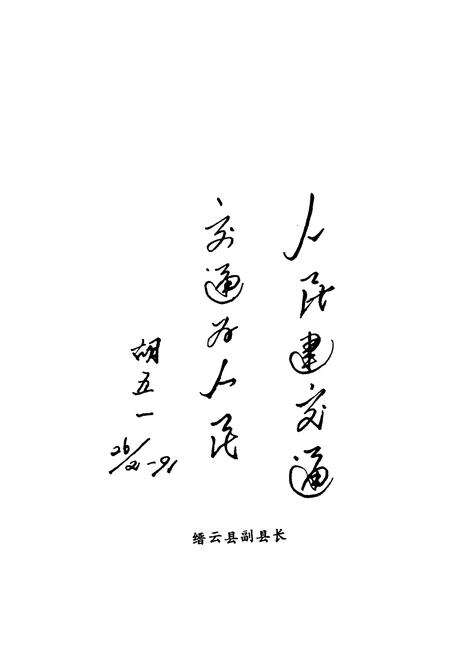 人民建交通
交通为人民
胡五一
26/2-91
缙云县副县长